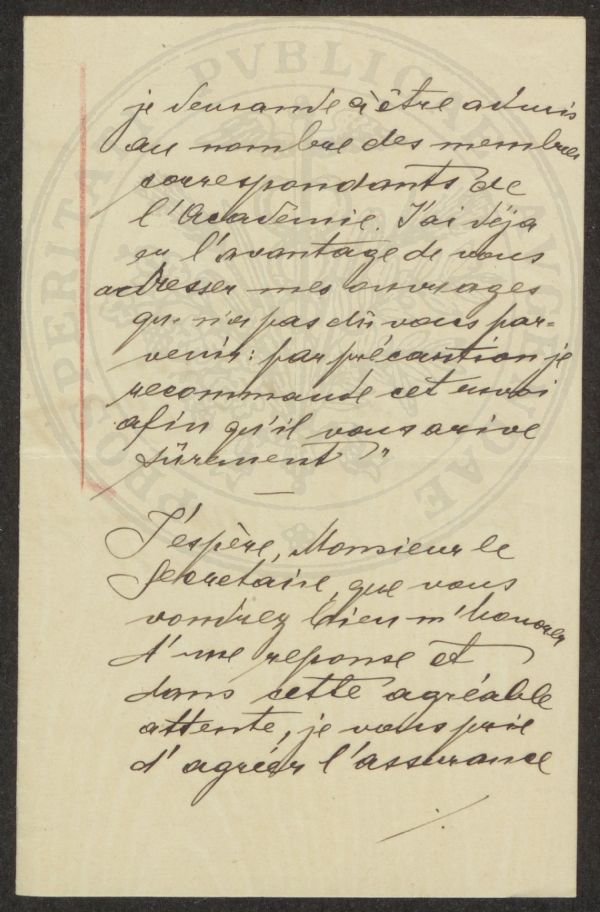 je demande à être admis
au nombre des membres
correspondants de
l'Académie. J'ai déja
eu l'avantage de vous
adresser mes ouvrages
qui n'on pas dû vous par=
venir: par précaution je
recommande cet envoi
afin qu'il vous arive
sûrement"
J'espère, Monsieur le
Secretaire, que vous
voudrez bien m'honorer
d'une reponse et
dans cette agréable
attente, je vous prie
d'agréer l'assurance
./.